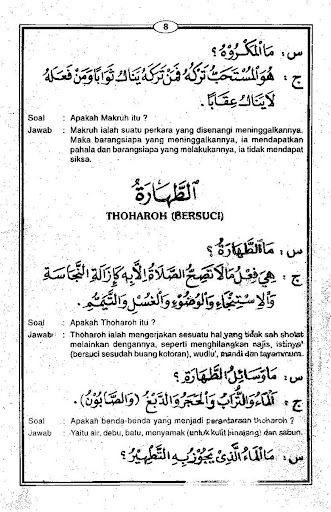 8
س : مَا الْمَكْرُوْهُ ؟
ج : هُوَ الْمُسْتَحَبُّ تَرْكُهُ فَمَنْ تَرَكَهُ يَنَالُ ثَوَابًا وَمَنْ فَعَلَهُ
لَا يَنَالُ عِقَابًا .
Soal : Apakah Makruh itu ?
Jawab : Makruh ialah suatu perkara yang disenangi meninggalkannya.
Maka barangsiapa yang meninggalkannya, ia mendapatkan
pahala dan barangsiapa yang melakukannya, ia tidak mendapat
siksa.
الطَّهَارَةُ
THOHAROH (BERSUCI)
س : مَا الطَّهَارَةُ ؟
ج : هِيَ فِعْلُ مَا لَا تَصِحُّ الصَّلَاةُ إِلَّا بِهِ كَإِزَالَةِ النَّجَاسَةِ
وَالْاِسْتِنْجَاءِ وَالْوُضُوْءِ وَالْغُسْلِ وَالتَّيَمُّمِ .
Soal : Apakah Thoharoh itu ?
Jawab : Thoharoh ialah mengerjakan sesuatu hal yang tidak sah sholat
melainkan dengannya, seperti menghilangkan najis, istinja'
(bersuci sesudah buang kotoran), wudlu', mandi dan tayammum.
س : مَا وَسَائِلُ الطَّهَارَةِ ؟
ج : اَلْمَاءُ وَالتُّرَابُ وَالْحَجَرُ وَالدَّبْغُ (وَالصَّابُوْنُ) .
Soal : Apakah benda-benda yang menjadi perantaraan thoharoh ?
Jawab : Yaitu air, debu, batu, menyamak (untuk kulit binatang) dan sabun.
س : مَا الْمَاءُ الَّذِيْ يَجُوْزُ بِهِ التَّطْهِيْرُ ؟